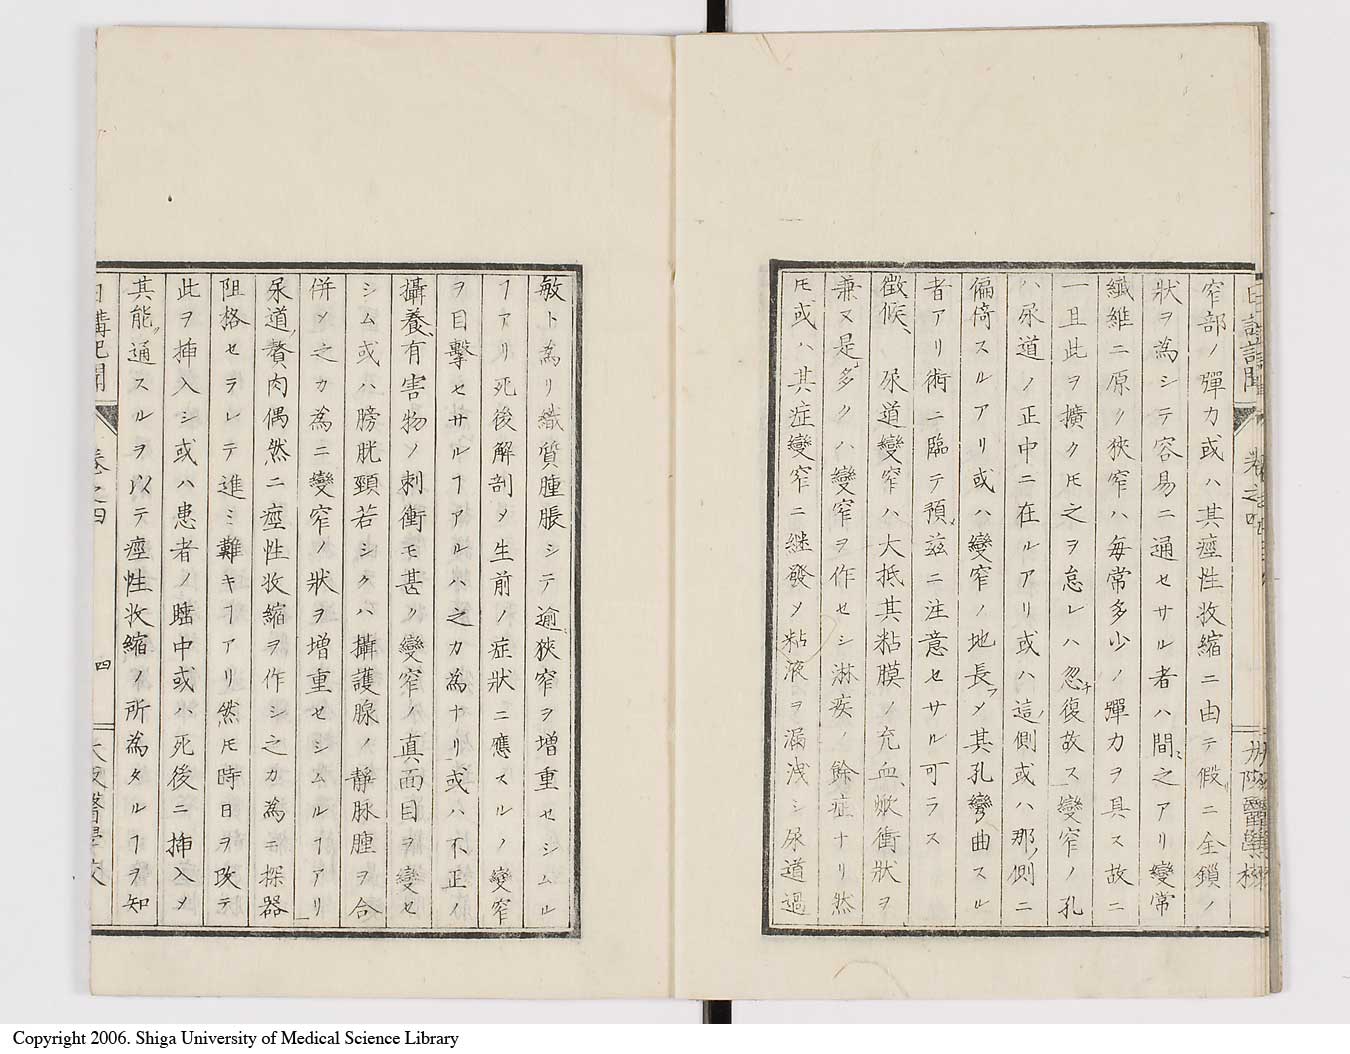 日講記聞 卷之四
大坂醫學校
窄部ノ彈力或ハ其痙性收縮ニ由テ假ニ全鎖ノ
狀ヲ為シテ容易ニ通セサル者ハ間之アリ變常
纖維ニ原ク狹窄ハ毎常多少ノ彈力ヲ具ス故ニ
一旦此ヲ擴クㇳモ之ヲ怠レハ忽復故ス變窄ノ孔
ハ尿道ノ正中ニ在ルアリ或ハ這側或ハ那ノ側ニ
偏倚スルアリ或ハ變窄ノ地長フメ其孔彎曲スル
者アリ術ニ臨テ預茲ニ注意セサル可ラス
徵候、 尿道變窄ハ大抵其粘膜ノ充血、焮衝狀ヲ
兼ヌ是多クハ變窄ヲ作セシ淋疾ノ餘症ナリ然
ㇳモ或ハ其症變窄ニ継發メ粘液ヲ漏洩シ尿道過
敏ト為リ織質腫脹シテ逾狹窄ヲ增重セシムル
ヿアリ死後解剖メ生前ノ症狀ニ應スルノ變窄
ヲ目擊セサルヿアルハ之カ為ナリ或ハ不正ノ
攝養、有害物ノ刺衝モ甚ク變窄ノ真面目ヲ變セ
シム或ハ膀胱頸若シクハ攝護腺ノ靜脉腫ヲ合
併メ之カ為ニ變窄ノ狀ヲ增重セシムルヿアリ
尿道贅肉偶然ニ痙性收縮ヲ作シ之カ為ニ探器
阻格セラレテ進ミ難キヿアリ然ㇳモ時日ヲ改テ
此ヲ揷入シ或ハ患者ノ睡中或ハ死後ニ揷入メ
其能通スルヲ以テ痙性收縮ノ所為タルヿヲ知
日講記聞 卷之四 四
大坂醫學校
Copyright 2006. Shiga University of Medical Science Library